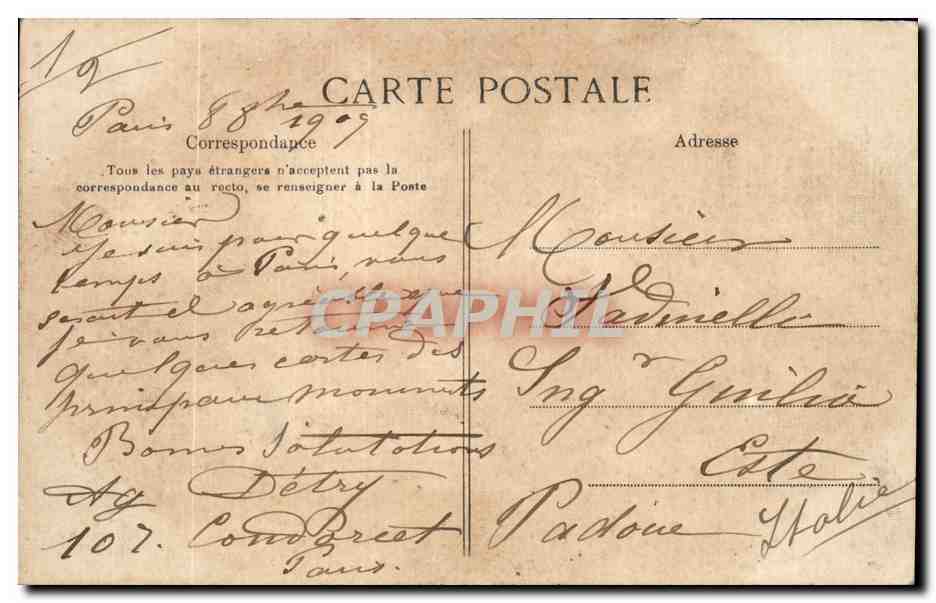 12
CARTE POSTALE
Paris 8 8bre 1909
Correspondance
Tous les pays étrangers n'acceptent pas la
correspondance au recto, se renseigner à la Poste
Monsieur
Je suis pour quelque
temps à Paris, vous
serait il agréable que
je vous retourne
quelques cartes des
principaux monuments
Bonnes Salutations
Ag Détry
107. Condorcet
Paris.
Adresse
Monsieur
Nadinelli
Ingr Guilio
Este
Padoue Italie
CPAPHIL